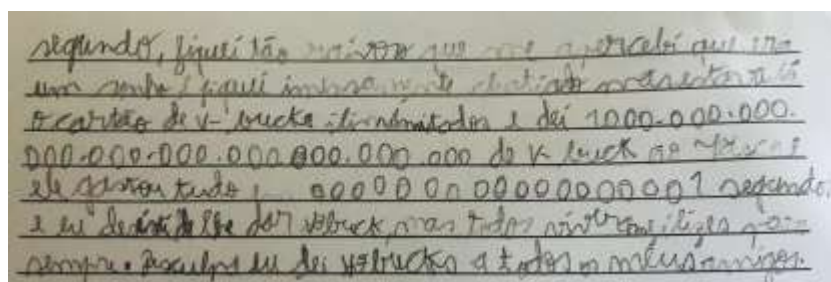 segundo, fiquei tão que me apercebi que era
um sonho e fiquei imensamente chatiado mas estava lá
o cartão de v-bucks e dei 1000.000.000.
000.000.000.000.000.000.000 de v-buck ao
ele gastou tudo 0000000000000001 segundo,
e eu de lhe dar vbuck, mas todos felizes para
sempre. Desculpe eu dei vbucks a todos os meus amigos.